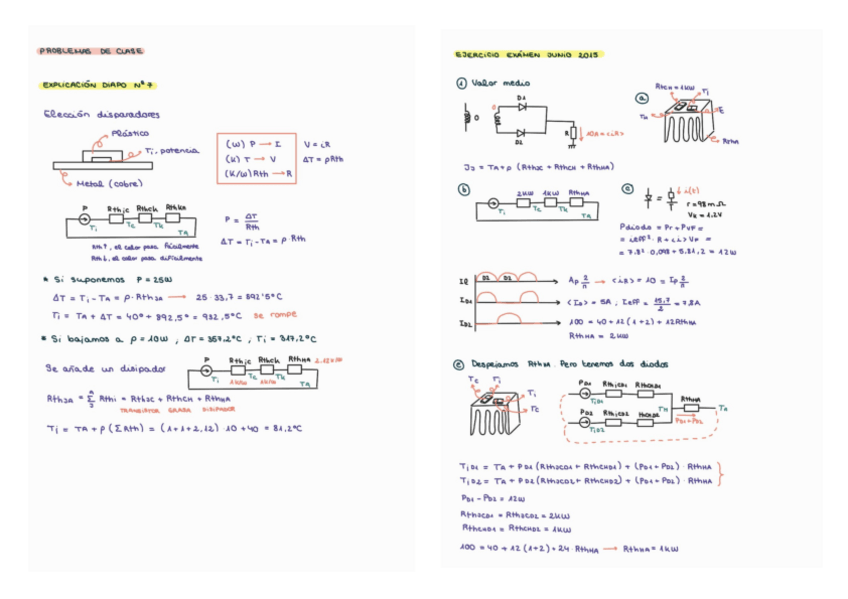 PROBLEMAS DE CLASE
EXPLICACIÓN DIAPO Nº 7
Elección disparadores
Plástico
Ti, potencia
Metal (cobre)
(W) P → I
(K) T → V
(K/W) Rth → R
V = iR
ΔT = ρRth
P Rthjc Rthck Rthka
Ti Tc Tk TA
Rth↑, el calor pasa fácilmente
Rth↓, el calor pasa difícilmente
P = ΔT / Rth
ΔT = Ti - TA = ρ Rth
* Si suponemos P = 25W
ΔT = Ti - TA = ρ · RthJA → 25 · 33,7 = 892'5°C
Ti = TA + ΔT = 40° + 892,5° = 932,5°C se rompe
* Si bajamos a ρ = 10W, ΔT = 357,2°C, Ti = 317,2°C
Se añade un disipador
P Rthjc Rthck RthHA
Ti 1K/W Tc 1K/W Tk TA
RthJA = Σ Rthi = RthJC + RthCH + RthHA
TRANSISTOR GRASA DISIPADOR
Ti = TA + ρ (ΣRth) = (1+1+2,12) · 10 + 40 = 81,2°C
EJERCICIO EXÁMEN JUNIO 2015
① Valor medio
D1
D2
R
10A = <iR>
ⓐ
RthCH = 1KW
Ti
TH
RthHA
TJ = TA + ρ (RthJC + RthCH + RthHA)
ⓑ
2KW 1KW RthHA
Ti Tc TH TA
ⓒ
i(t)
r = 98mΩ
Vk = 1.2V
Pdiodo = Pr + PVF =
= iEFF² · R + <i> VF =
= 7.8² · 0,098 + 5.81,2 = 12W
IR D1 D2
ID1
ID2
Ap 2/π → <iR> = 10 = Ip 2/π
<ID> = 5A; IEFF = 15,7/2 = 7.8A
100 = 40 + 12 (1+2) + 12RthHA
RthHA = 2KW
ⓔ Despejamos RthHA. Pero tenemos dos diodos
Tc Ti
Ti
Tc
PD1 RthJCD1 RthCHD1
TiD1
RthHA
TH
PD2 RthJCD2 thCHD2
TiD2
PD1+PD2
TiD1 = TA + PD1 (RthJCD1 + RthCHD1) + (PD1 + PD2) · RthHA
TiD2 = TA + PD2 (RthJCD2 + RthCHD2) + (PD1 + PD2) · RthHA
PD1 - PD2 = 12W
RthJCD1 = RthJCD2 = 2KW
RthCHD1 = RthCHD2 = 1KW
100 = 40 + 12 (1+2) + 24 · RthHA → RthHA = 1KW